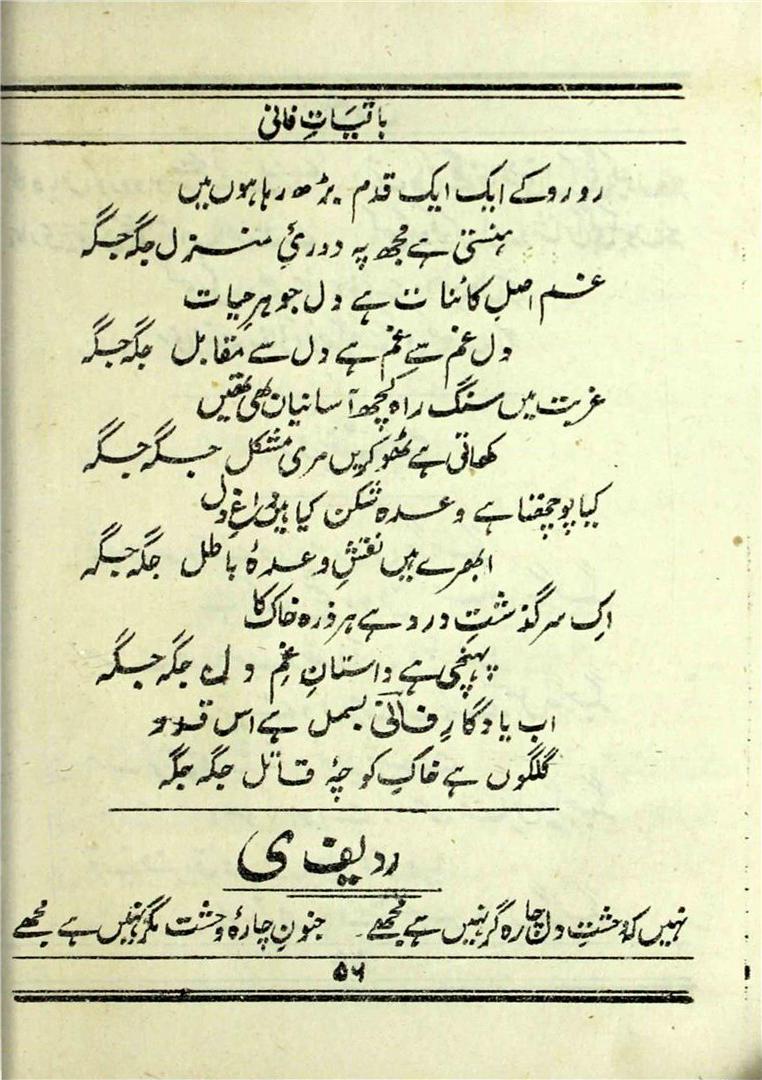 باقیاتِ فانی
رو رو کے ایک ایک قدم بڑھ رہا ہوں میں
ہنستی ہے مجھ پہ دوریِ منزل جگہ جگہ
غم اصلِ کائنات ہے دل جوہرِ حیات
دل غم سے غم ہے دل سے مقابل جگہ جگہ
غربت میں سنگ راہ کچھ آسانیاں بھی تھیں
کھاتی ہے ٹھوکریں مری مشکل جگہ جگہ
کیا پوچھنا ہے وعدہ شکن کیا ہیں داغِ دل
ابھرے ہیں نقشِ وعدۂ باطل جگہ جگہ
اِک سرگذشتِ درد ہے ہر ذرہ خاک کا
پہنچی ہے داستانِ غمِ دل جگہ جگہ
اب یادگارِ فانیؔ بسمل ہے اس قدر
گلگوں ہے خاکِ کوچۂ قاتل جگہ جگہ
ردیف ی
نہیں کہ وحشتِ دل چارہ گر نہیں ہے مجھے جنونِ چارۂ وحشت مگر نہیں ہے مجھے
۵۶